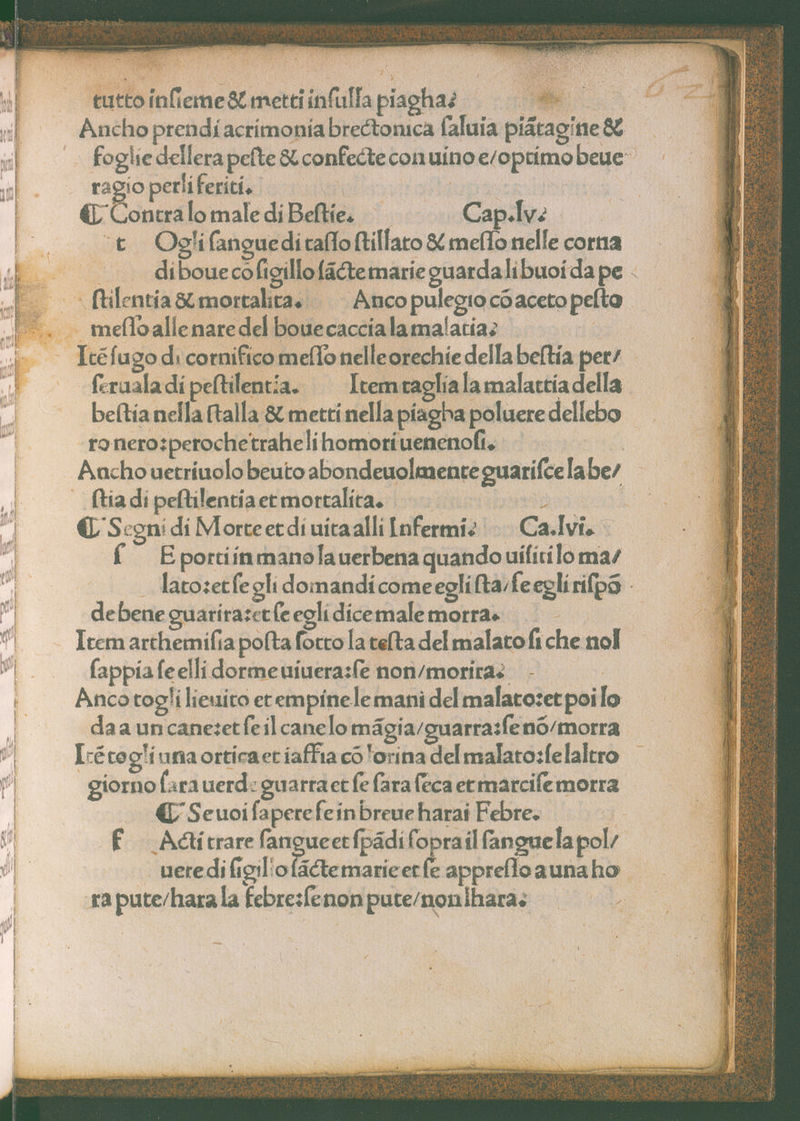 62
tutto inſieme & metti inſulla piagha.
Ancho prendi acrimonia brectonica ſaluia piātagine &
foglie dellera peſte & confecte con uino e/optimo beue
ragio perli feriti.
⸿ Contra lo male di Beſtie. Cap.lv.
t Ogli ſangue di taſſo ſtillato & meſſo nelle corna
di boue cō ſigillo ſācte marie guarda li buoi da pe
ſtilentia & mortalita. Anco pulegio cō aceto peſto
meſſo alle nare del boue caccia la malatia.
Itē ſugo di cornifico meſſo nelle orechie della beſtia per/
ſerua la di peſtilentia. Item taglia la malattia della
beſtia nella ſtalla & metti nella piagha poluere dellebo
ro nero:peroche trahe li homori uenenoſi.
Ancho uetriuolo beuto abondeuolmente guariſce la be/
ſtia di peſtilentia et mortalita.
⸿ Segni di Morte et di uita alli Infermi. Ca.lvi.
ſ E porti in mano la uerbena quando uiſiti lo ma/
lato:et ſe gli domandi come egli ſta/ſe egli riſpō
de bene guarira:et ſe egli dice male morra.
Item arthemiſia poſta ſotto la teſta del malato ſi che nol
ſappia ſe elli dorme uiuera:ſe non/morira.
Anco togli lieuito et empine le mani del malato:et poi lo
da a un cane:et ſe il cane lo māgia/guarra:ſe nō/morra
Itē togli una ortica et iaffia cō lorina del malato:ſe laltro
giorno ſara uerde guarra et ſe ſara ſeca et marciſe morra
⸿ Se uoi ſapere ſe in breue harai Febre.
f Acti trare ſangue et ſpādi ſopra il ſangue la pol/
uere di ſigillo ſācte marie et ſe appreſſo a una ho
ra pute/hara la febre:ſe non pute/non lhara.